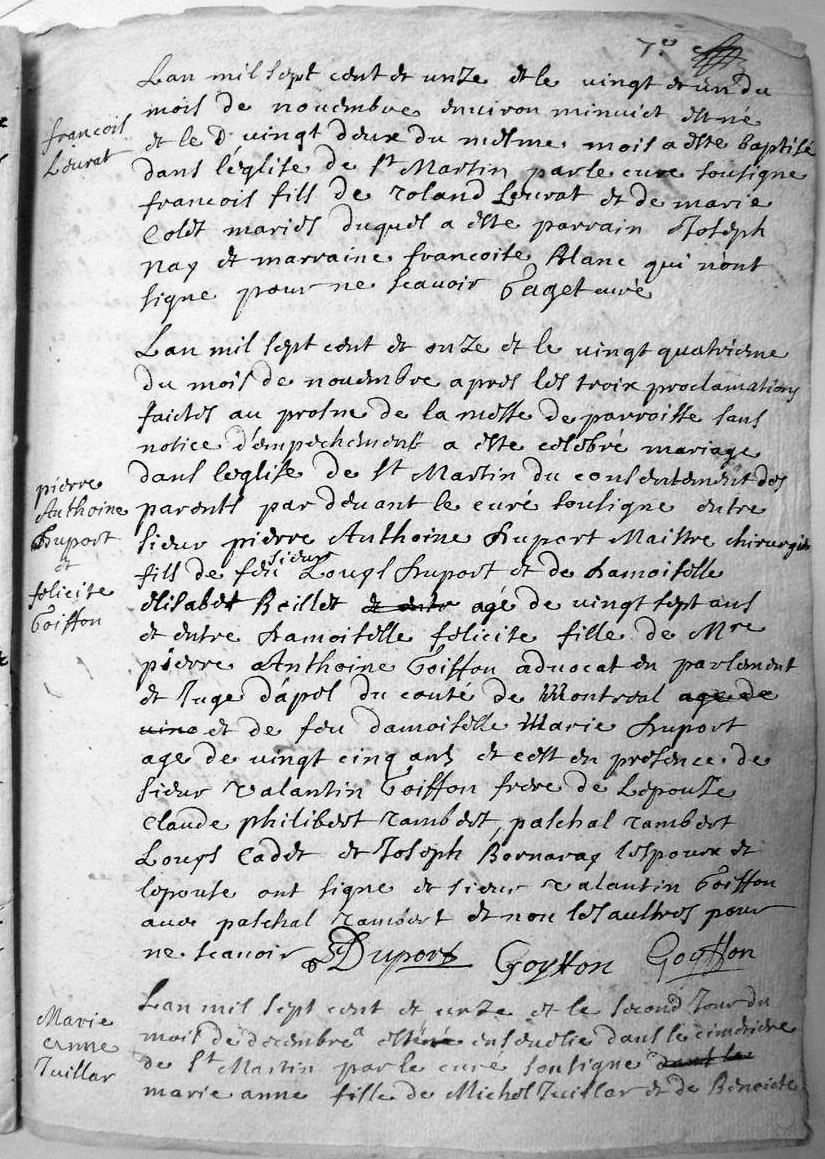 7e
Lan mil sept cent et unze et le vingt et un du
mois de novembre environ minuict est né
et le d. vingt deux du mesme mois a este baptisé
dans leglise de St Martin par le curé sousigne
francois fils de roland Leurat et de marie
Colet mariés duquel a este parrain Joseph
Nay et marraine francoise Blanc qui n'ont
signe pour ne scavoir Gaget curé
francois
Leurat
Lan mil sept cent et onze et le vingt quatrieme
du mois de novembre apres les troix proclamations
faictes au prosne de la messe de parroisse sans
notice d'empechement a este celebré mariage
dans leglise de St Martin du consentement des
parents par devant le curé sousigne entre
sieur pierre Anthoine Duport Maistre chirurgien
fils de feu sieur Louys Duport et de Damoiselle
elisabet Reillet et entr agé de vingt sept ans
et entre Damoiselle felicite fille de Mre
pierre Anthoine Goiffon advocat en parlement
et Juge dapel du conté de Montreal age de
vinc et de feu damoiselle Marie Duport
age de vingt cinq ans et cest en presence de
sieur valantin Goiffon frere de Lepouse
Claude philibert rambert, paschal rambert
Louys Cadet et Joseph Bornaray lespoux et
lepouse ont signe et sieur valantin Goiffon
avec paschal rambert et non les aultres pour
ne scavoir Duport Goyffon Goyffon
pierre
Anthoine
Duport
et
felicite
Goiffon
Lan mil sept cent et unze et le second Jour du
mois de decembre a esté ensevelie dans le cimetiere
de St Martin par le curé sousigne dans le
marie anne fille de Michel Juillar et de Benoicte
Marie
Anne
Juillar